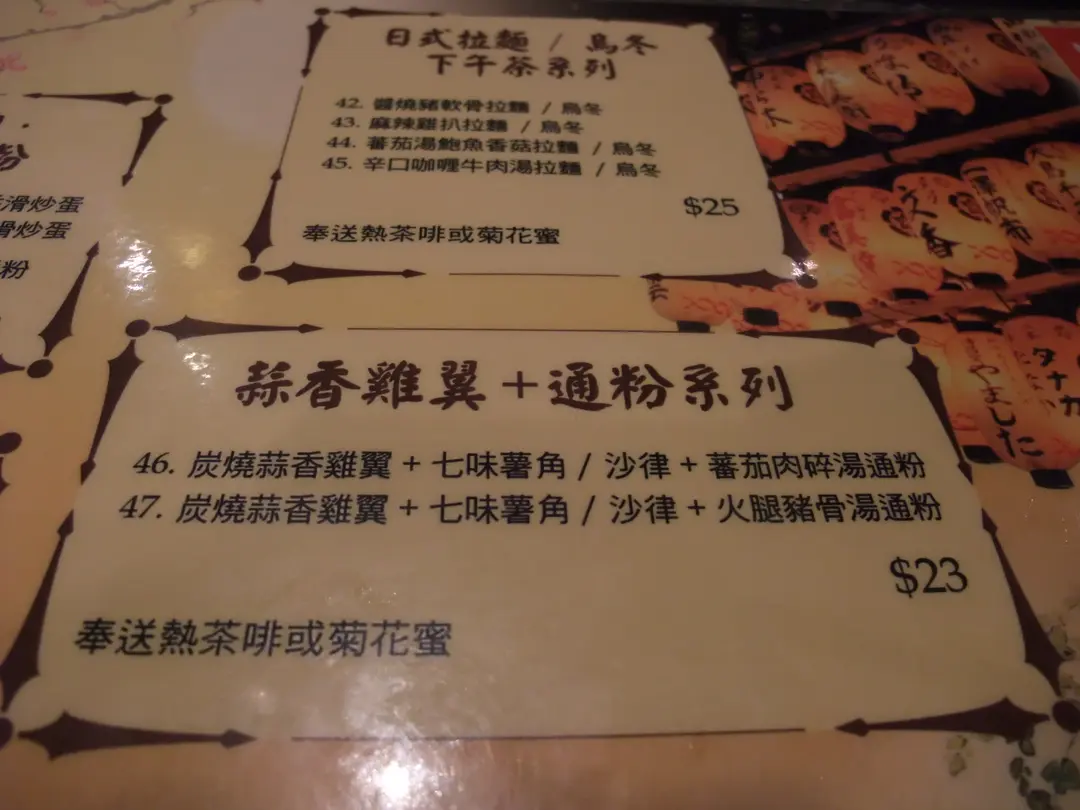 日式拉麵 / 烏冬
下午茶系列
42. 醬燒豬軟骨拉麵 / 烏冬
43. 麻辣雞扒拉麵 / 烏冬
44. 蕃茄湯鮑魚香菇拉麵 / 烏冬
45. 辛口咖喱牛肉湯拉麵 / 烏冬
$25
奉送熱茶啡或菊花蜜
滑炒蛋
滑炒蛋
粉
蒜香雞翼+通粉系列
46. 炭燒蒜香雞翼 + 七味薯角 / 沙律 + 蕃茄肉碎湯通粉
47. 炭燒蒜香雞翼 + 七味薯角 / 沙律 + 火腿豬骨湯通粉
$23
奉送熱茶啡或菊花蜜
文香
タナカ
やました